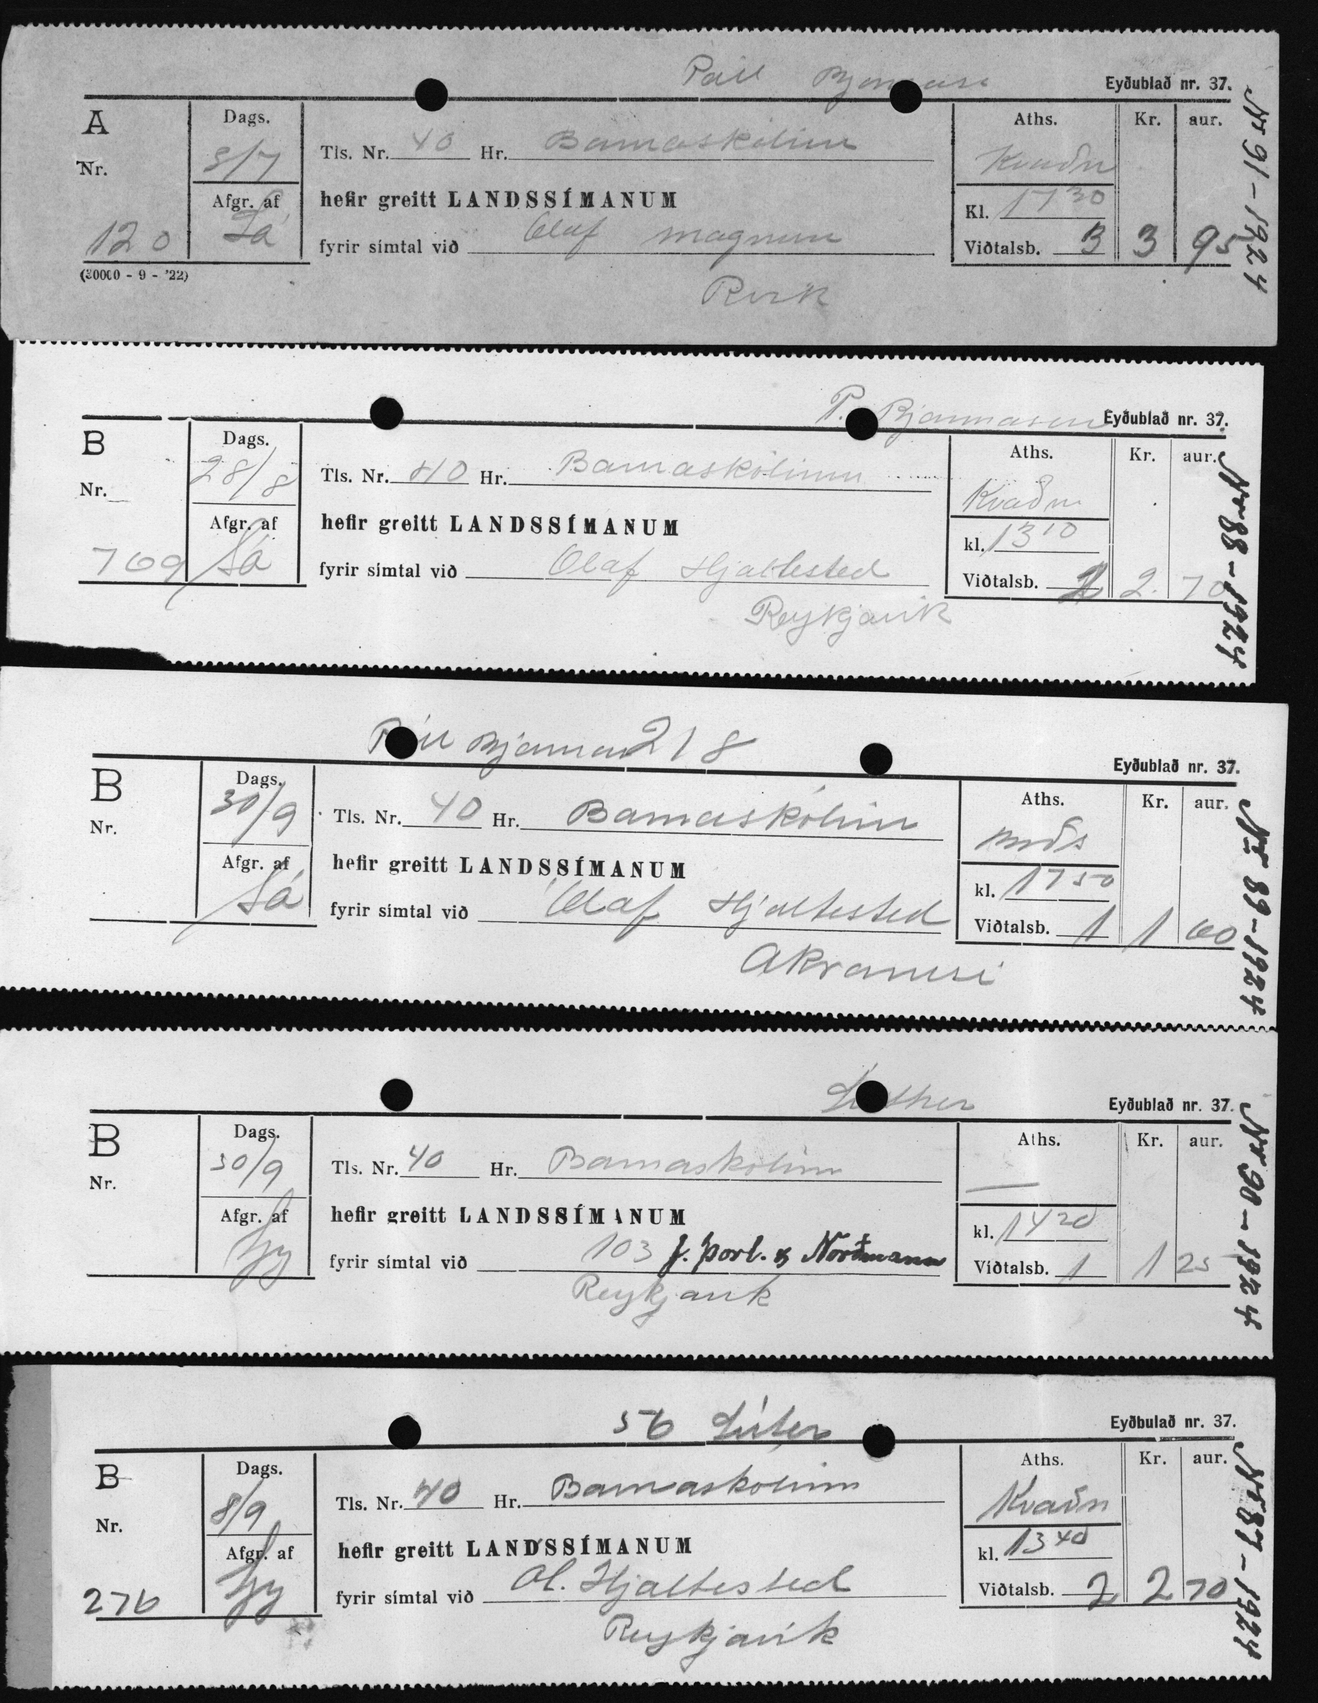 Páll Bjarnas
Eyðublað nr. 37.
A Dags. Aths. Kr. aur.
Nr. 3/7 Tls. Nr. 40 Hr. Barnaskólinn Kvaðn
Afgr. af hefir greitt LANDSSÍMANUM Kl. 17 30
120 Já fyrir símtal við Olaf Magnum Viðtalsb. 3 3 95
(30000 - 9 - '22)
Rvík
Nr 91-1924
P. Bjarnason Eyðublað nr. 37.
B Dags. Aths. Kr. aur.
Nr. 28/8 Tls. Nr. 40 Hr. Barnaskólinn Kvaðn
Afgr. af hefir greitt LANDSSÍMANUM kl. 13 10
709 Já fyrir símtal við Olaf Hjaltested Viðtalsb. 2 2. 70
Reykjavík
Nr 88-1924
Páll Bjarnas 218
Eyðublað nr. 37.
B Dags. Aths. Kr. aur.
Nr. 30/9 Tls. Nr. 40 Hr. Barnaskólinn
Afgr. af hefir greitt LANDSSÍMANUM kl. 17 50
Já fyrir símtal við Olaf Hjaltested Viðtalsb. 1 1 60
Akranesi
Nr 89-1924
Luther
Eyðublað nr. 37.
B Dags. Aths. Kr. aur.
Nr. 30/9 Tls. Nr. 40 Hr. Barnaskólinn
Afgr. af hefir greitt LANDSSÍMANUM kl. 14 20
fyrir símtal við 103 J. Þorl. & Norðmann Viðtalsb. 1 1 25
Reykjavík
Nr 90-1924
56 Lúter
Eyðbulað nr. 37.
B Dags. Aths. Kr. aur.
Nr. 8/9 Tls. Nr. 40 Hr. Barnaskólinn Kvaðn
Afgr. af hefir greitt LANDSSÍMANUM kl. 13 40
276 fyrir símtal við Ol. Hjaltested Viðtalsb. 2 2 70
Reykjavík
Nr 87-1924